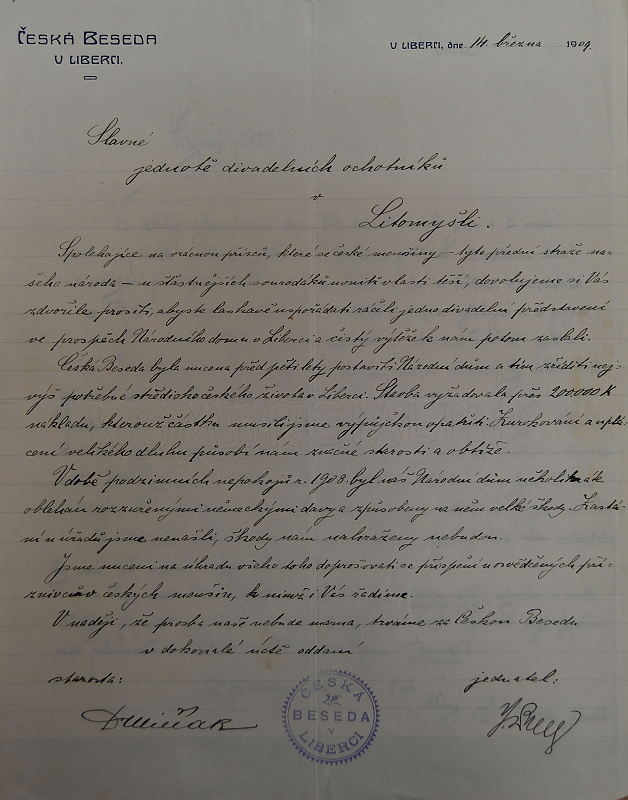 ČESKÁ BESEDA
V LIBERCI.
V LIBERCI, dne 14. března 1909.
Slavné
jednotě divadelních ochotníků
v
Litomyšli.
Spoléhajíce na vzácnou přízeň, které se české menšiny – tyto přední stráže na-
šeho národa – u šťastnějších sousodáků uvnitř vlasti těší, dovolujeme si Vás
zdvořile prositi, abyste laskavě uspořádati ráčili jedno divadelní představení
ve prospěch Národního domu v Liberci a čistý výtěžek nám potom zaslali.
Česká Beseda byla nucena před pěti lety postaviti Národní dům a tím zříditi nej-
výš potřebné středisko českého života v Liberci. Stavba vyžadovala přes 200.000 K
nákladu, kterouž částku musili jsme výpůjčkou opatřiti. Zúrokování a uplá-
cení velikého dluhu působí nám značné starosti a obtíže.
V době podzimních nepokojů r. 1908 byl náš Národní dům několikráte
obléhán rozzuřenými německými davy a způsobeny na něm velké škody. Zastá-
ní u úřadů jsme nenašli, škody nám nahraženy nebudou.
Jsme nuceni na úhradu všeho toho doprošovati se přispění u osvědčených pří-
znivcův českých menšin, k nimž i Vás řadíme.
V naději, že prosba naše nebude marna, trváme za Českou Besedu
v dokonalé úctě oddaní
starosta:
jednatel:
ČESKÁ
BESEDA
V
LIBERCI